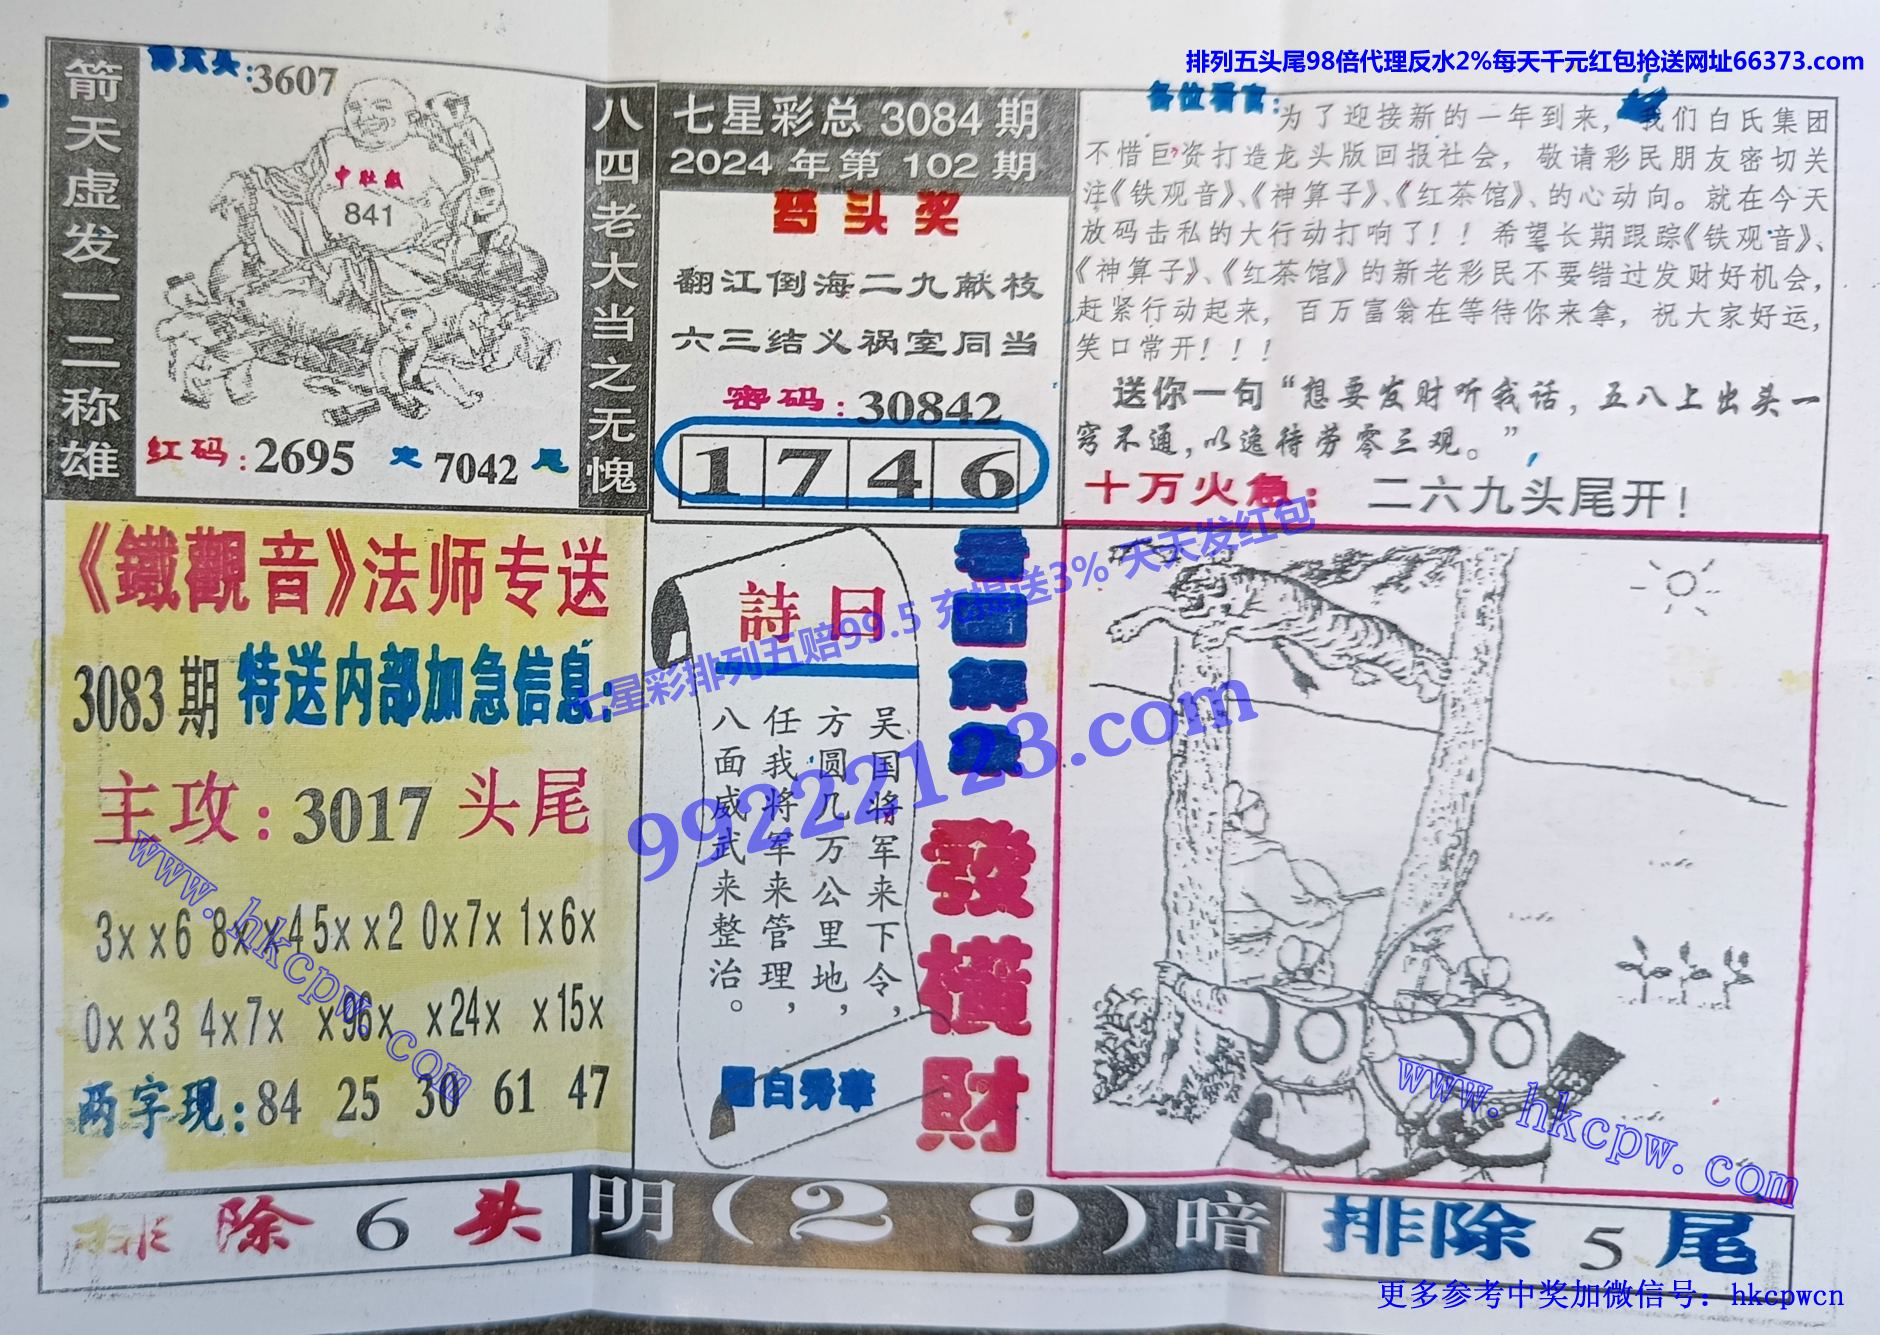 排列五头尾98倍代理反水2%每天千元红包抢送网址66373.com
箭天虚发一二称雄
3607
中肚数
841
红码:2695 定 7042 尾
八四老大当之无愧
七星彩总 3084 期
2024 年第 102 期
头奖
翻江倒海二九献枝
六三结义祸室同当
密码:30842
1746
各位看官:
为了迎接新的一年到来,我们白氏集团
不惜巨资打造龙头版回报社会,敬请彩民朋友密切关
注《铁观音》、《神算子》、《红茶馆》、的心动向。就在今天
放码击私的大行动打响了!!希望长期跟踪《铁观音》、
《神算子》、《红茶馆》的新老彩民不要错过发财好机会,
赶紧行动起来,百万富翁在等待你来拿,祝大家好运,
笑口常开!!!
送你一句“想要发财听我话,五八上出头一
窍不通,以逸待劳零三观。”
十万火急:二六九头尾开!
《鐵觀音》法师专送
3083期 特送内部加急信息:
主攻:3017 头尾
3xx6 8xx4 5xx2 0x7x 1x6x
0xx3 4x7x x96x x24x x15x
两字现:84 25 30 61 47
詩曰
吴国将军来下令,
方圆几万公里地,
任我将军来管理,
八面威武来整治。
看图解
發橫財
七星彩排列五赔99.5 充提送3% 天天发红包
99222123.com
www.hkcpw.com
www.hkcpw.com
排除6头
明(29)暗
排除5尾
更多参考中奖加微信号:hkcpwcn